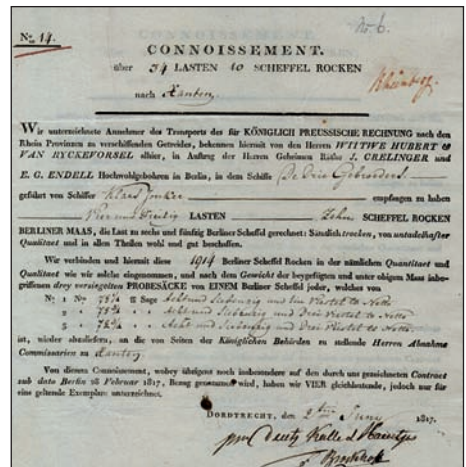 No. 14.
No. 6.
CONNOISSEMENT.
über 34 LASTEN 10 SCHEFFEL ROCKEN
Rheinberg.
nach Xanten.
Wir unterzeichnete Annehmer des Transports des für KÖNIGLICH PREUSSISCHE RECHNUNG nach den
Rhein Provinzen zu verschiffenden Getreides, bekennen hiermit von den Herren WITTWE HUBERT &
VAN RYCKEVORSEL alhier, in Auftrag der Herren Geheimen Räthe J. CRELINGER und
E. G. ENDELL Hochwohlgebohren in Berlin, in dem Schiffe De drie Gebroeders
geführt von Schiffer Klaas empfangen zu haben
Vier und dreisig LASTEN Zehn SCHEFFEL ROCKEN
BERLINER MAAS, die Last zu sechs und fünfzig Berliner Scheffel gerechnet: Sämtlich trocken, von untadelhafter
Qualitaet und in allen Theilen wohl und gut beschaffen.
Wir verbinden uns hiermit diese 1914 Berliner Scheffel Rocken in der nämlichen Quantitaet und
Qualitaet wie wir solche eingenommen, und nach dem Gewicht der beygefügten und unter obigem Maas inbe-
griffenen drey versiegelten PROBESÄCKE von EINEM Berliner Scheffel jeder, welches von
No 1 No 78¼ ℔ Sage Achtund Siebenzig und Ein Viertel ℔ Netto
2 78¾ Acht und Siebenzig und Drei Viertel ℔ Netto
3 78¾ Acht und Siebenzig und Drei Viertel ℔ Netto
ist, wieder abzuliefern, an die von Seiten der Königlichen Behörden zu stellende Herren Abnahme
Commissarien zu Xanten
Von diesem Connoissement, wobey übrigens noch insbesondere auf den durch uns gezeichneten Contract
sub dato Berlin 28 Februar 1817, Bezug genommen wird, haben wir VIER gleichlautende, jedoch nur für
eine geltende Exemplare unterzeichnet.
DORDTRECHT, den 2ten Juny 1817.